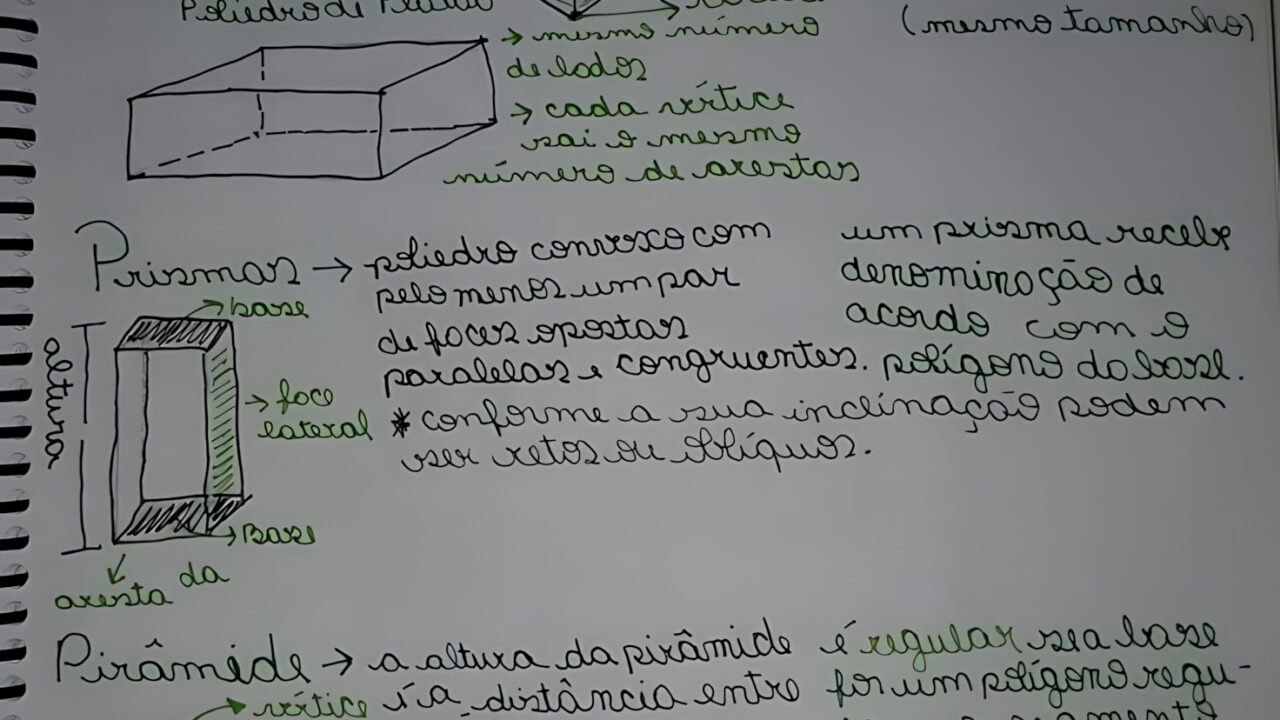 Poliedro de Platão
→ mesmo número
de lados
→ cada vértice
sai o mesmo
número de arestas
(mesmo tamanho)
Prismas → poliedro convexo com
pelo menos um par
de faces opostas
paralelas e congruentes.
* conforme a sua inclinação podem
ser retos ou oblíquos.
um prisma recebe
denominação de
acordo com o
polígono da base.
base
altura
face
lateral
Base
aresta da
Pirâmide → a altura da pirâmide
é a distância entre
vértice
é regular se a base
for um polígono regu-